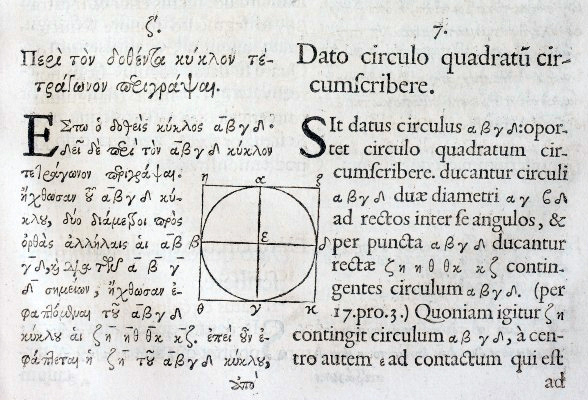 ζ'.
Περὶ τὸν δοθέντα κύκλον τε-
τράγωνον περιγράψαι.
Ἔστω ὁ δοθεὶς κύκλος αβγδ.
Δεῖ δὲ περὶ τὸν αβγδ κύκλον
τετράγωνον περιγράψαι.
ἤχθωσαν τοῦ αβγδ κύ-
κλου, δύο διάμετροι πρὸς
ὀρθὰς ἀλλήλαις αἱ α β
γ δ, τῶν α β γ
δ σημείων, ἤχθωσαν ἐ-
φαπτόμεναι τοῦ αβγδ
κύκλου αἱ ζη ηθ θκ κζ. ἐπεὶ οὖν ἐ-
φάπτεται ἡ ζη τοῦ αβγδ κύκλου,
ὑπὸ
η α ζ
β ε δ
θ γ κ
7.
Dato circulo quadratũ cir-
cumſcribere.
SIt datus circulus α β γ δ: opor-
tet circulo quadratum cir-
cumſcribere. ducantur circuli
α β γ δ duæ diametri αγ βδ
ad rectos inter ſe angulos, &
per puncta α β γ δ ducantur
rectæ ζη ηθ θκ κζ contin-
gentes circulum α β γ δ. (per
17.pro.3.) Quoniam igitur ζη
contingit circulum α β γ δ, à cen-
tro autem ε ad contactum qui eſt
ad